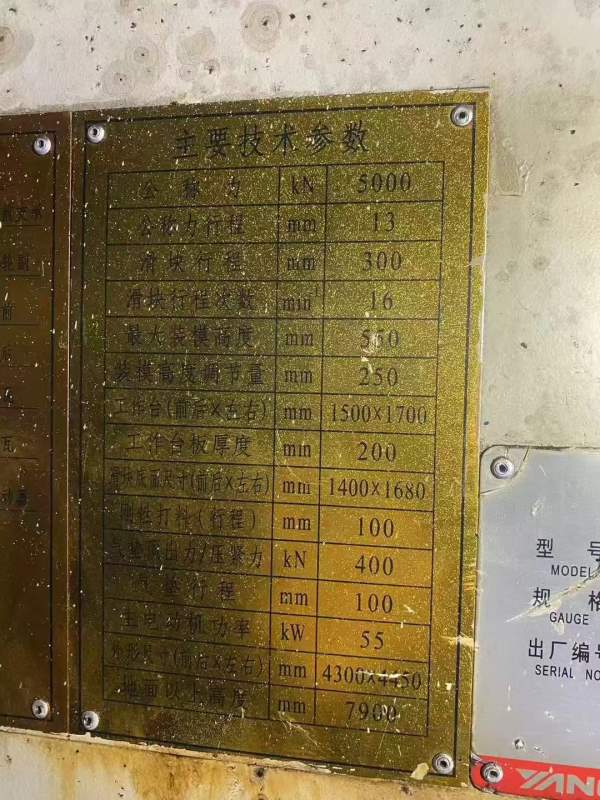 主要技术参数
公称力 kN 5000
公称力行程 mm 13
滑块行程 mm 300
滑块行程次数 min⁻¹ 16
最大装模高度 mm 550
装模高度调节量 mm 250
工作台(前后×左右) mm 1500×1700
工作台板厚度 mm 200
滑块底面尺寸(前后×左右) mm 1400×1680
刚性打料(行程) mm 100
气垫顶出力/压紧力 kN 400
气垫行程 mm 100
主电动机功率 kW 55
外形尺寸(前后×左右) mm 4300×4450
地面以上高度 mm 7900
前
瓦
型号
MODEL
规格
GAUGE
出厂编号
SERIAL NO